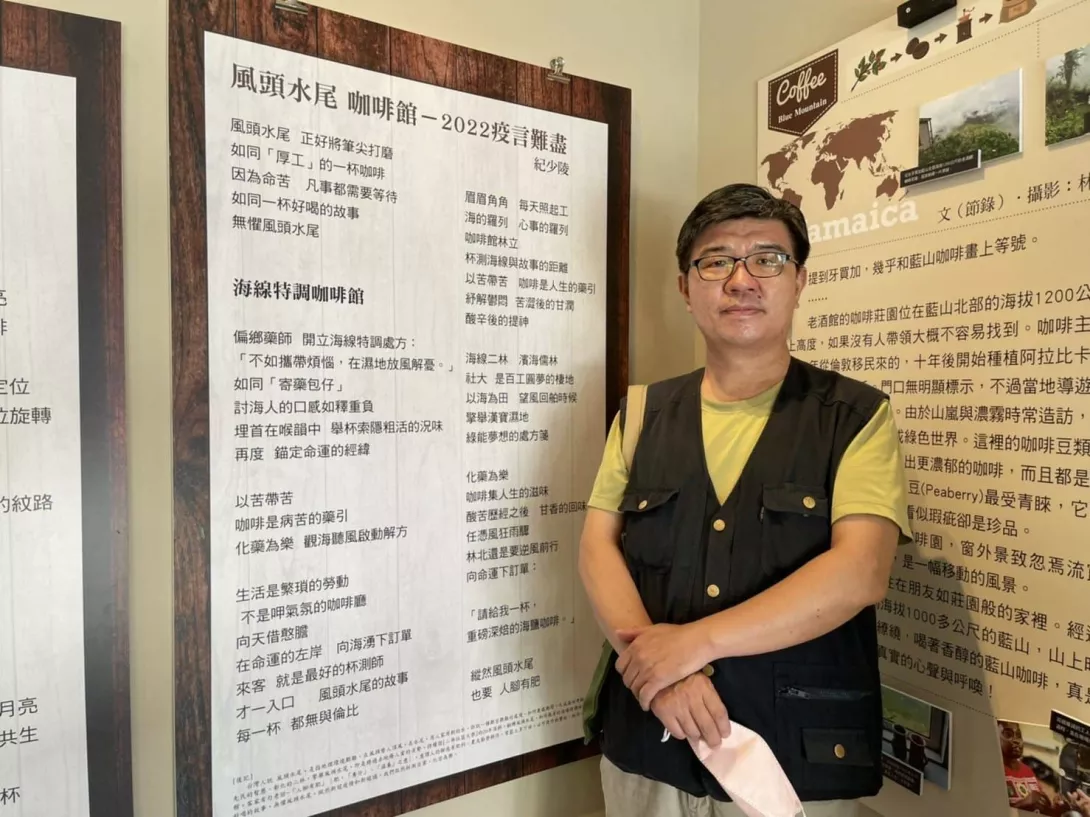 風頭水尾 咖啡館－2022疫言難盡
紀少陵
風頭水尾 正好將筆尖打磨
如同「厚工」的一杯咖啡
因為命苦 凡事都需要等待
如同一杯好喝的故事
無懼風頭水尾
海線特調咖啡館
偏鄉藥師 開立海線特調處方：
「不如攜帶煩惱，在濕地放風解憂。」
如同「寄藥包仔」
討海人的口感如釋重負
埋首在喉韻中 舉杯索隱粗活的況味
再度 錨定命運的經緯
以苦帶苦
咖啡是病苦的藥引
化藥為樂 觀海聽風啟動解方
生活是繁瑣的勞動
不是呷氣氛的咖啡廳
向天借憨膽
在命運的左岸 向海湧下訂單
來客 就是最好的杯測師
才一入口 風頭水尾的故事
每一杯 都無與倫比
眉眉角角 每天照起工
海的羅列 心事的羅列
咖啡館林立
杯測海線與故事的距離
以苦帶苦 咖啡是人生的藥引
紓解鬱悶 苦澀後的甘潤
酸辛後的提神
海線二林 濱海儒林
社大 是百工圓夢的棲地
以海為田 望風回舶時候
擎舉漢寶濕地
綠能夢想的處方箋
化藥為樂
咖啡集人生的滋味
酸苦歷經之後 甘香的回味
任憑風狂雨驟
林北還是要逆風前行
向命運下訂單：
「請給我一杯，
重磅深焙的海鹽咖啡。」
縱然風頭水尾
也要 人腳有肥
[後記]
亮
啡
定位
位旋轉
的紋路
月亮
共生
杯
Coffee
Blue Mountain
amaica
文(節錄)・攝影：林
提到牙買加，幾乎和藍山咖啡畫上等號。
……
老酒館的咖啡莊園位在藍山北部的海拔1200公
上高度，如果沒有人帶領大概不容易找到。咖啡主
年從倫敦移民來的，十年後開始種植阿拉比卡
門口無明顯標示，不過當地導遊
。由於山嵐與濃霧時常造訪，
成綠色世界。這裡的咖啡豆類
出更濃郁的咖啡，而且都是
豆(Peaberry)最受青睞，它
看似瑕疵卻是珍品。
啡園，窗外景致忽焉流
，是一幅移動的風景。
住在朋友如莊園般的家裡。經
海拔1000多公尺的藍山，山上
繚繞，喝著香醇的藍山咖啡，真
真實的心聲與呼喚！